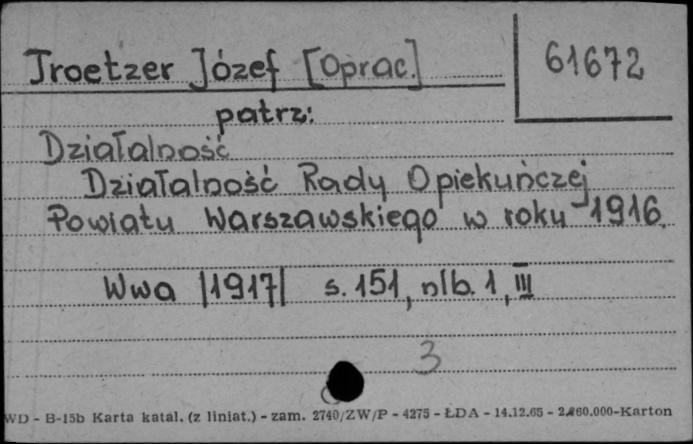 Troetzer Józef [Oprac.]
61672
patrz:
Działalność
Działalność Rady Opiekuńczej
Powiatu Warszawskiego w roku 1916.
Wwa |1917| s. 151, nlb. 1, III
3
WD - B-15b Karta katal. (z liniat.) - zam. 2740/ZW/P - 4275 - ŁDA - 14.12.65 - 2.260.000-Karton